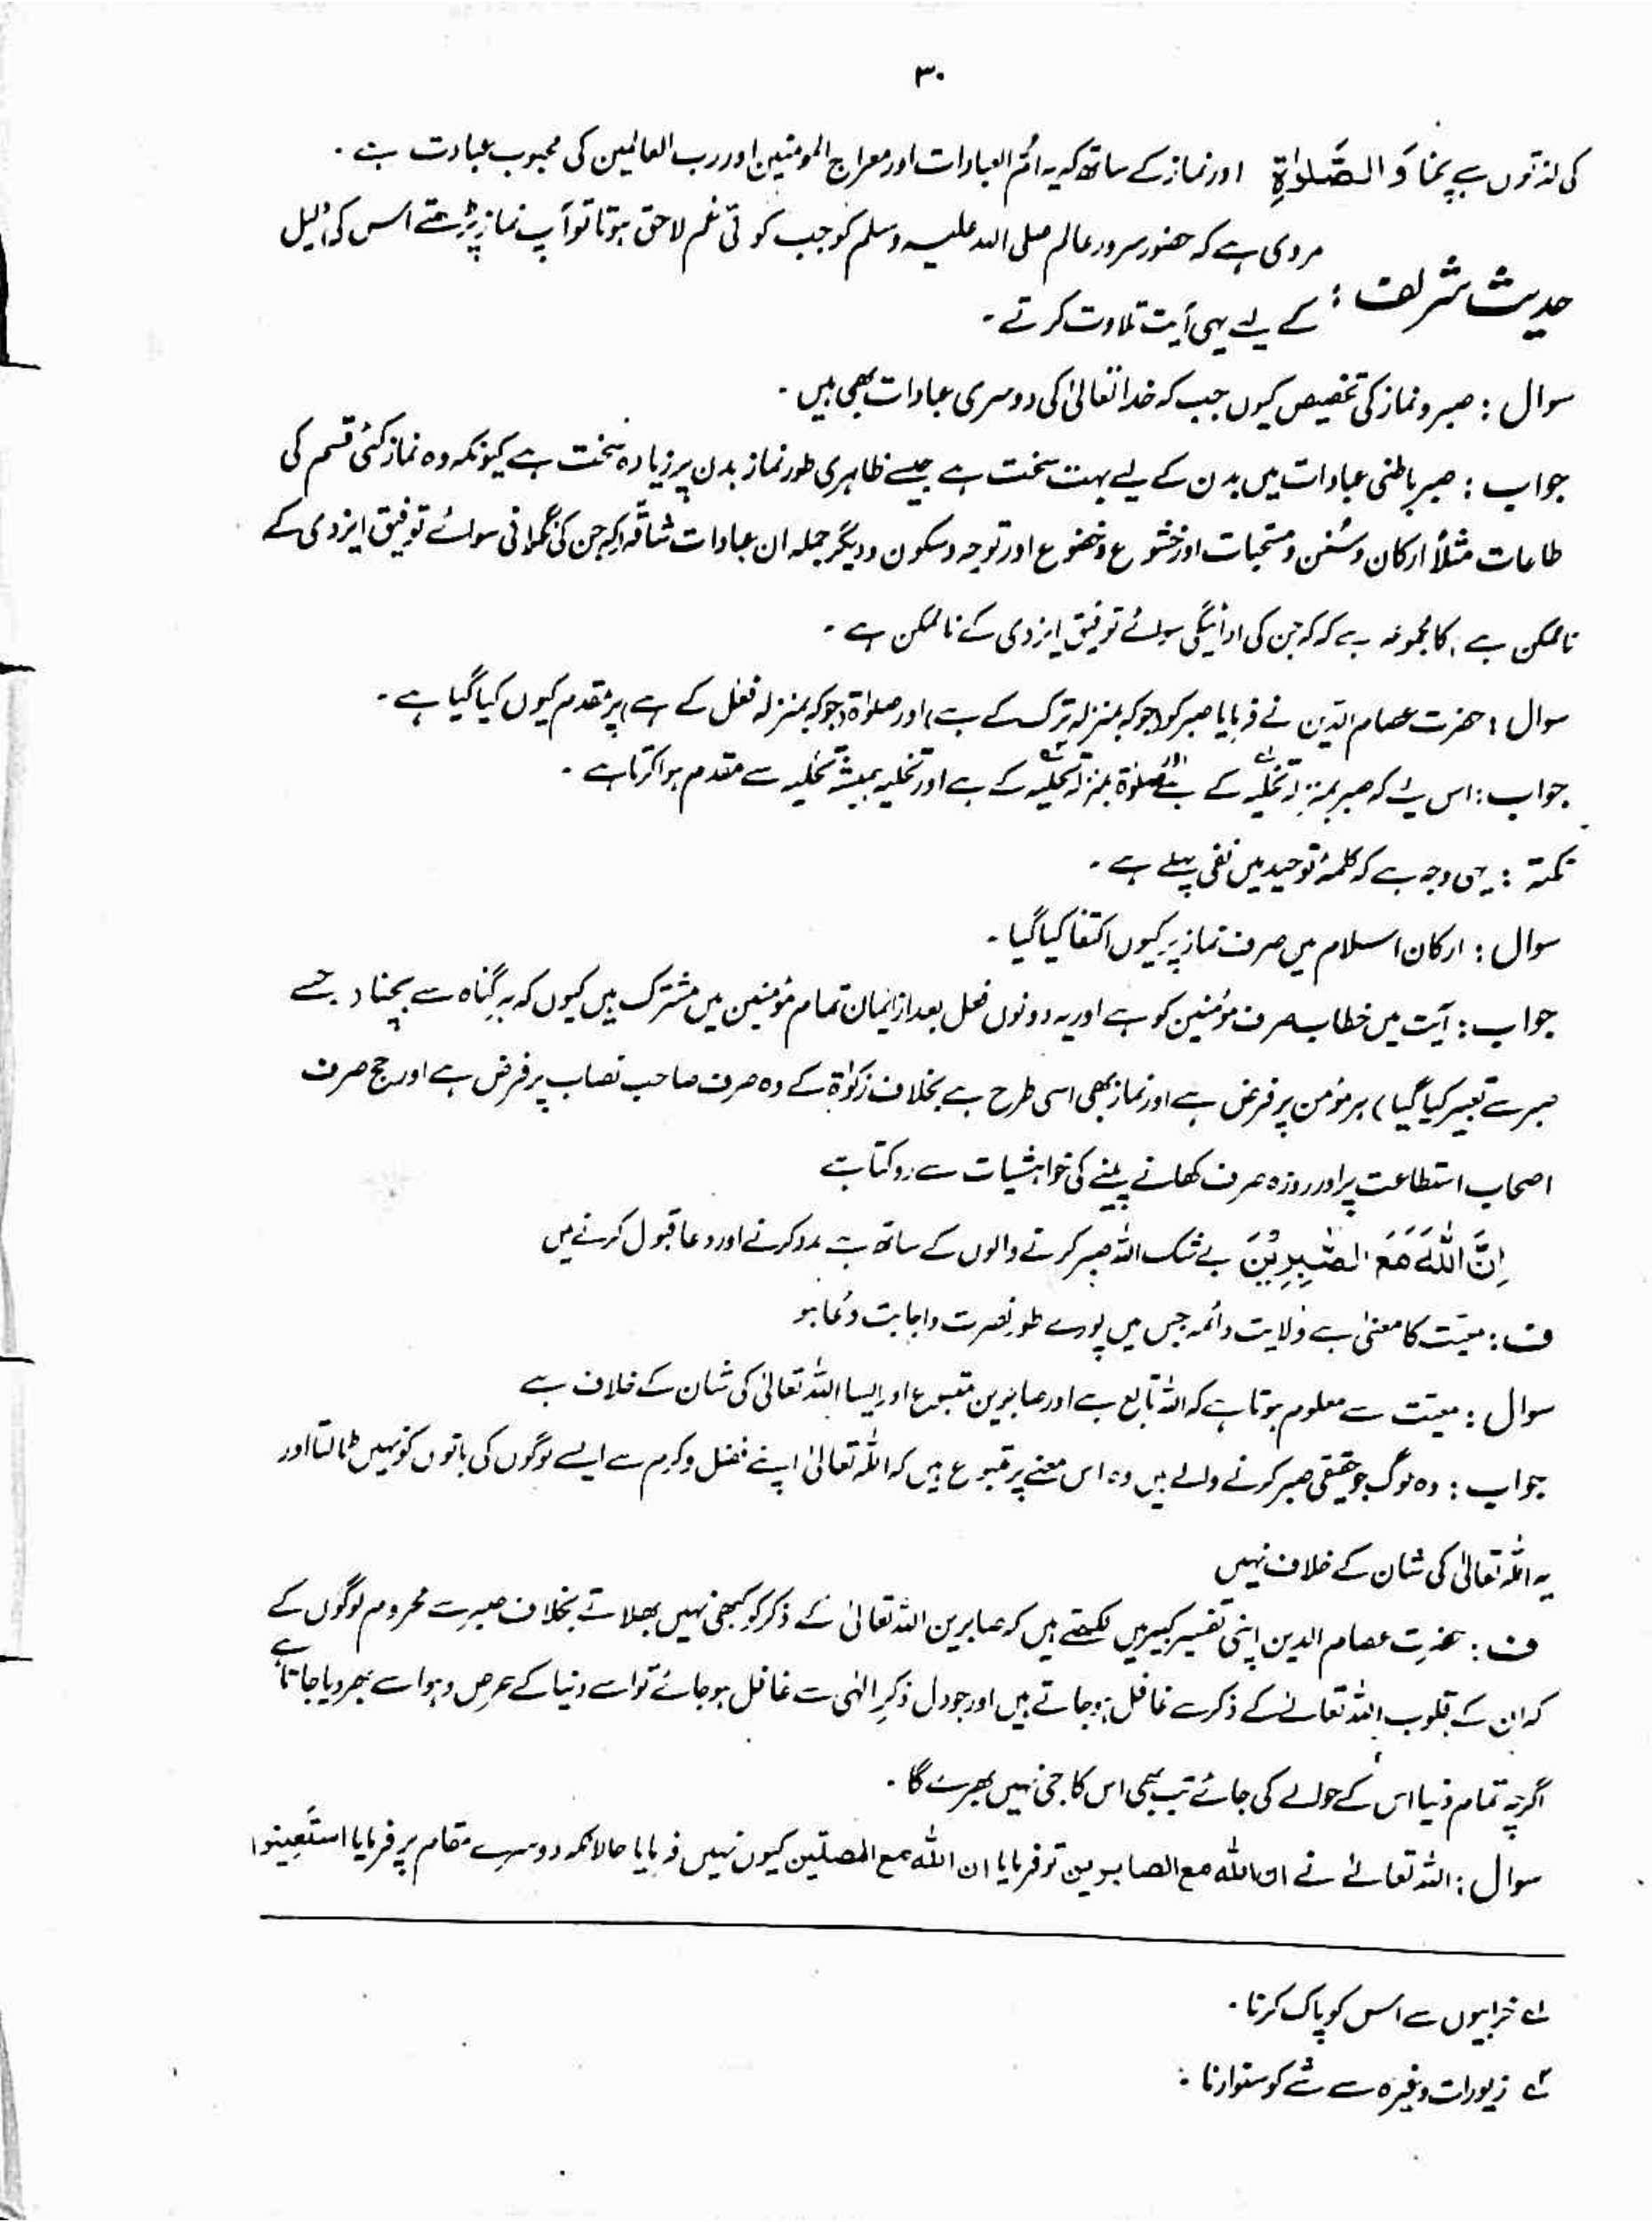 ۳۰
کی لذتوں سے بچنا وَ الصَّلوٰۃِ اور نماز کے ساتھ کہ یہ اُمّ العبادات اور معراج المومنین اور رب العالمین کی محبوب عبادت ہے ۔
حدیث شریف : مروی ہے کہ حضور سرور عالم صلی اللہ علیہ وسلم کو جب کوئی غم لاحق ہوتا تو آپ نماز پڑھتے اس کی دلیل
کے لیے یہی آیت تلاوت کرتے ۔
سوال : صبر و نماز کی تخصیص کیوں جب کہ خدا تعالیٰ کی دوسری عبادات بھی ہیں ۔
جواب : صبر باطنی عبادات میں بدن کے لیے بہت سخت ہے جیسے ظاہری طور نماز بدن پر زیادہ سخت ہے کیونکہ وہ نماز کئی قسم کی
طاعات مثلاً ارکان و سُنن و مستحبات اور خشوع و خضوع اور توجہ و سکون و دیگر جملہ ان عبادات شاقہ (کہ جن کی نگرانی سوائے توفیق ایزدی کے
ناممکن ہے) کا مجموعہ ہے کہ کہ جن کی ادائیگی سوائے توفیق ایزدی کے ناممکن ہے ۔
سوال : حضرت عصام الدین نے فرمایا صبر کو (جو کہ بمنزلہ ترک کے ہے) اور صلوٰۃ (جو کہ بمنزلہ فعل کے ہے) پر مقدم کیوں کیا گیا ہے ۔
جواب : اس لیے کہ صبر بمنزلہ تخلیہ۱ کے ہے اور صلوٰۃ بمنزلہ تحلیہ۲ کے ہے اور تخلیہ ہمیشہ تحلیہ سے مقدم ہوا کرتا ہے ۔
نکتہ : یہی وجہ ہے کہ کلمۂ توحید میں نفی پہلے ہے ۔
سوال : ارکان اسلام میں صرف نماز پر کیوں اکتفا کیا گیا ۔
جواب : آیت میں خطاب صرف مؤمنین کو ہے اور یہ دونوں فعل بعد از ایمان تمام مؤمنین میں مشترک ہیں کیوں کہ ہر گناہ سے بچنا (جسے
صبر سے تعبیر کیا گیا) ہر مؤمن پر فرض ہے اور نماز بھی اسی طرح ہے بخلاف زکوٰۃ کے وہ صرف صاحب نصاب پر فرض ہے اور حج صرف
اصحاب استطاعت پر اور روزہ صرف کھانے پینے کی خواہشیات سے روکتا ہے
اِنَّ اللّٰہَ مَعَ الصّٰبِرِیْنَ بے شک اللہ صبر کرنے والوں کے ساتھ ہے مدد کرنے اور دعا قبول کرنے میں
ف : معیّت کا معنیٰ ہے ولایت دائمہ جس میں پورے طور نصرت و اجابت دُعا ہو
سوال : معیّت سے معلوم ہوتا ہے کہ اللہ تابع ہے اور صابرین متبوع اور ایسا اللہ تعالیٰ کی شان کے خلاف ہے
جواب : وہ لوگ جو حقیقی صبر کرنے والے ہیں وہ اس معنے پر متبوع ہیں کہ اللہ تعالیٰ اپنے فضل و کرم سے ایسے لوگوں کی باتوں کو نہیں ٹالتا اور
یہ اللہ تعالیٰ کی شان کے خلاف نہیں
ف : حضرت عصام الدین اپنی تفسیر کبیر میں لکھتے ہیں کہ صابرین اللہ تعالیٰ کے ذکر کو کبھی نہیں بھلاتے بخلاف صبر سے محروم لوگوں کے
کہ ان کے قلوب اللہ تعالےٰ کے ذکر سے غافل ہو جاتے ہیں اور جو دل ذکرِ الٰہی سے غافل ہو جائے تو اسے دنیا کے حرص و ہوا سے بھر دیا جاتا ہے
اگرچہ تمام دنیا اس کے حوالے کی جائے تب بھی اس کا جی نہیں بھرے گا ۔
سوال : اللہ تعالےٰ نے ان اللہ مع الصابرین تو فرمایا ان اللہ مع المصلّین کیوں نہیں فرمایا حالانکہ دوسرے مقام پر فرمایا استَعِینوا
۱ خرابیوں سے اس کو پاک کرنا ۔
۲ زیورات وغیرہ سے شے کو سنوارنا ۔